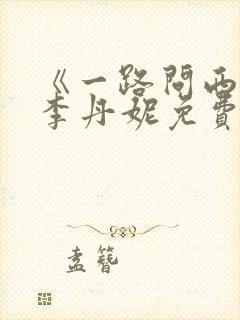 《一路问西
李丹妮免费
孟簪